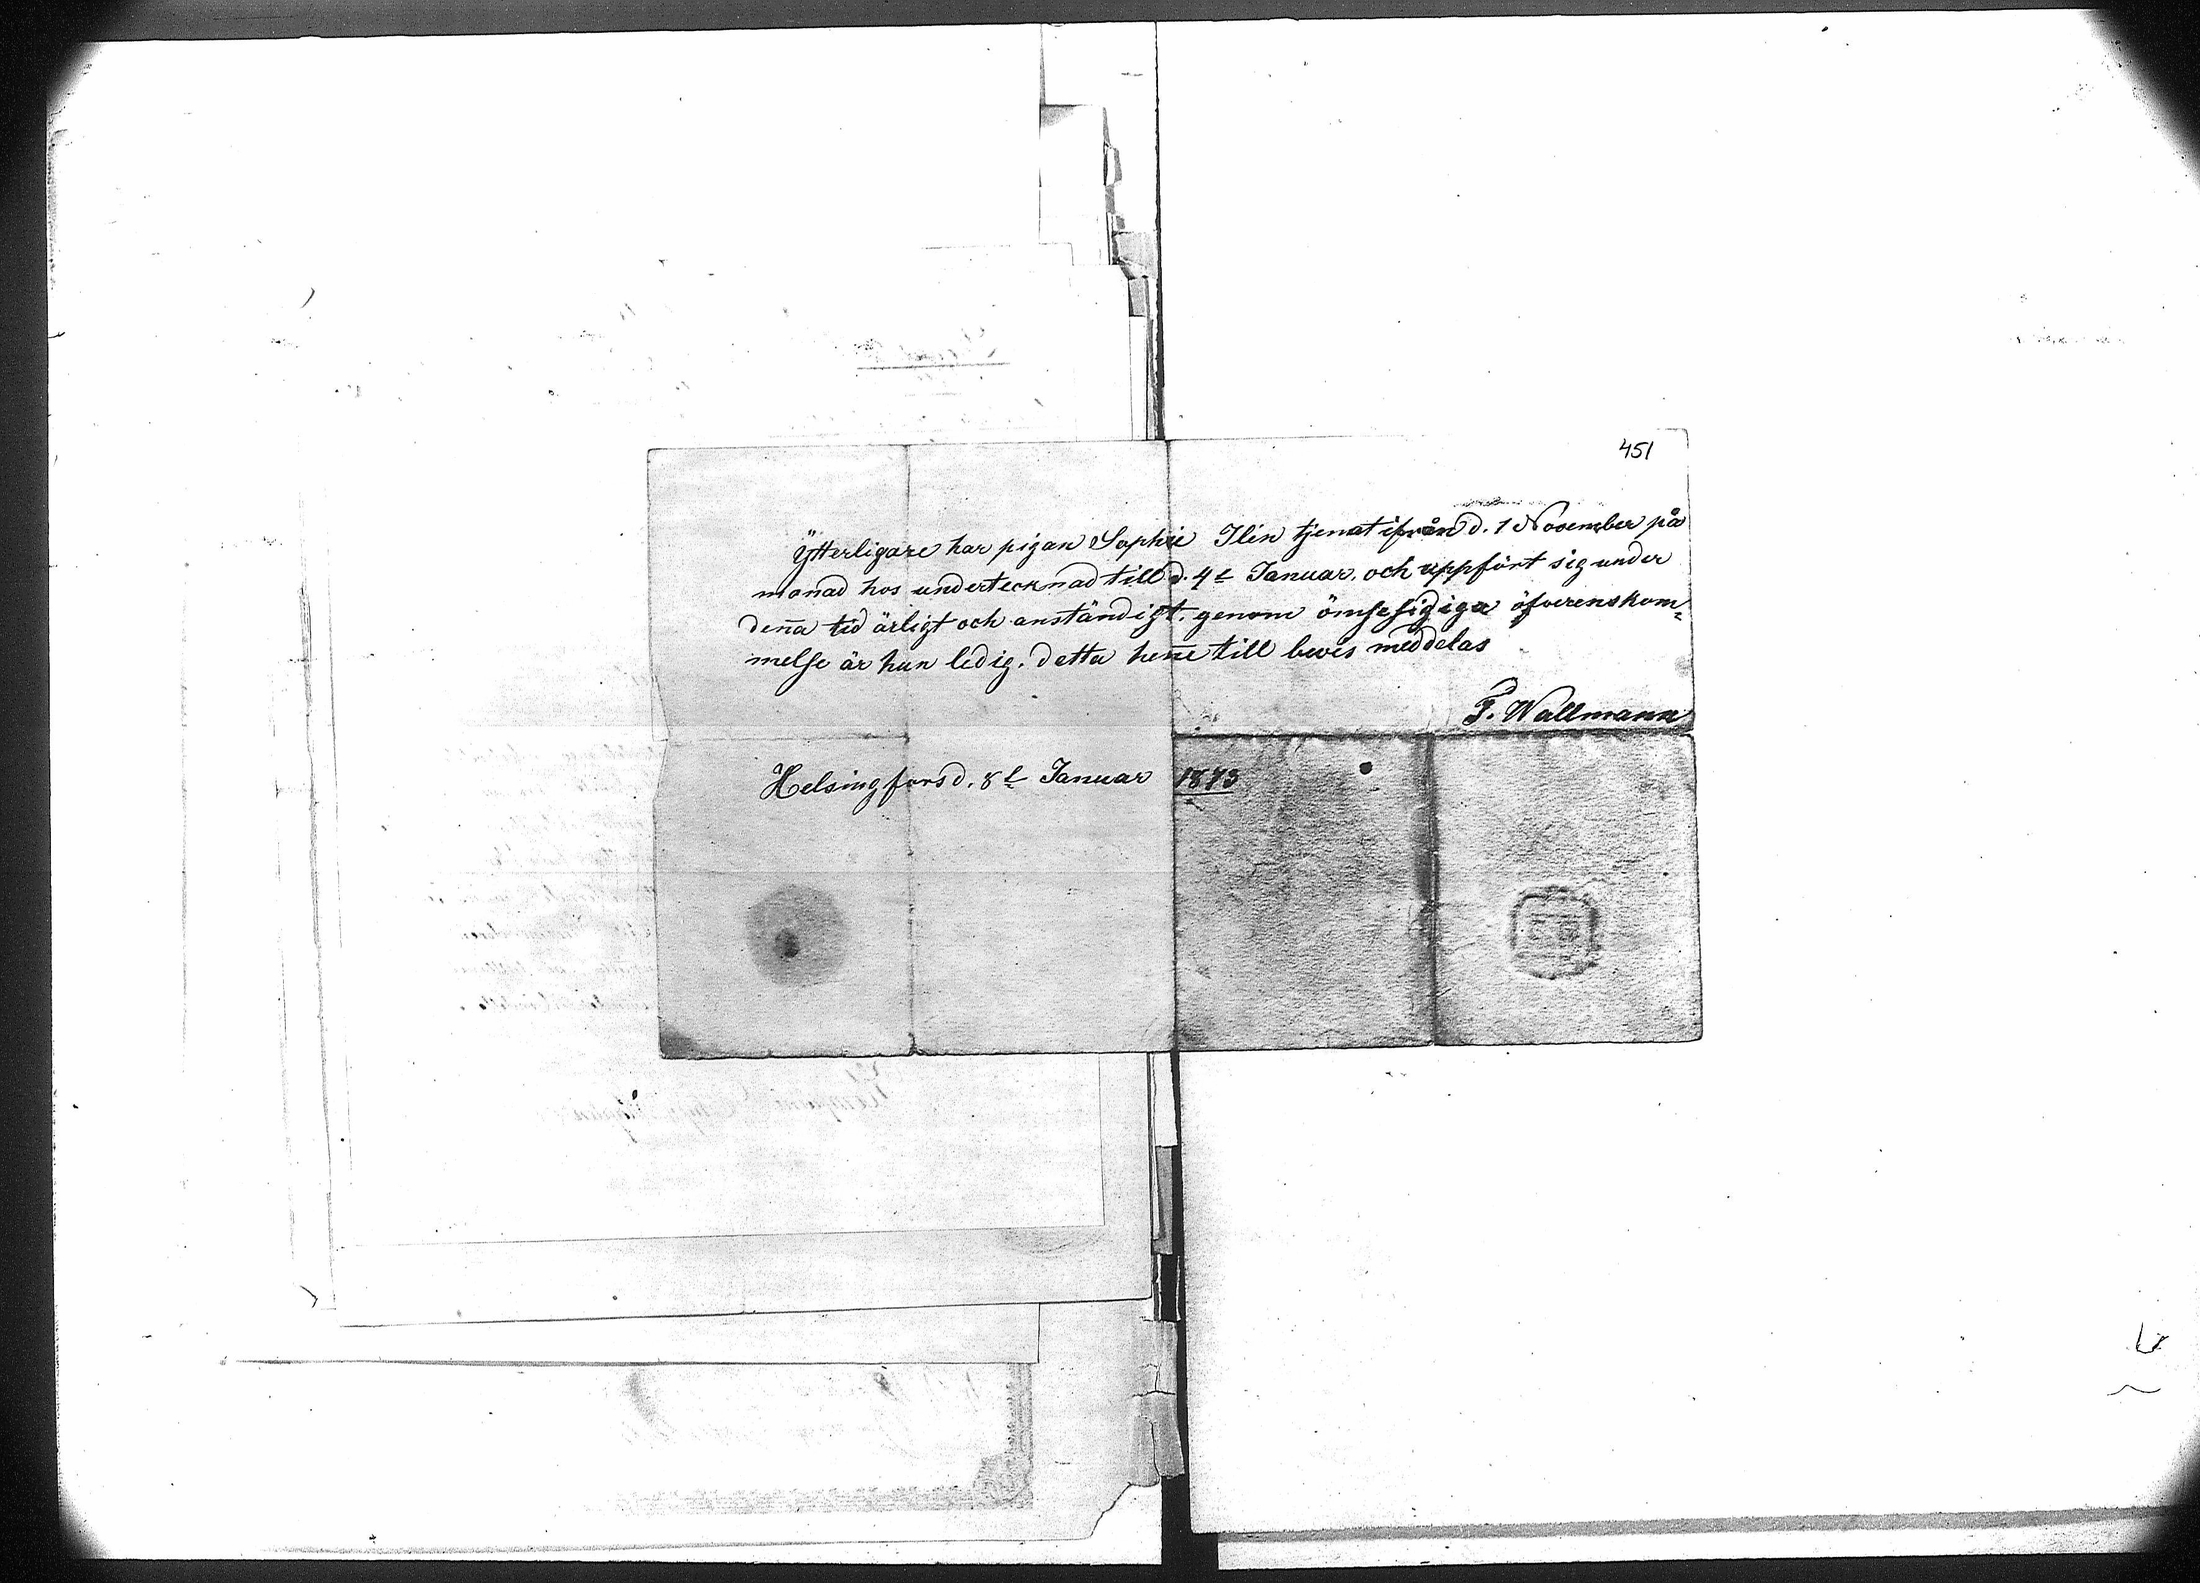 451
Ytterligare har pigan Sophie Ilin tjenat ifrån d. 1 November på
monad hos undertecknad till d. 4t Januar. och uppfört sig under
deña tid ärligt och anständigt. genom ömsesidiga öfverenskom=
melse är hun ledig. detta heñe till bevis meddelas
P. Wallmann
Helsingfors d. 8t Januar 1873